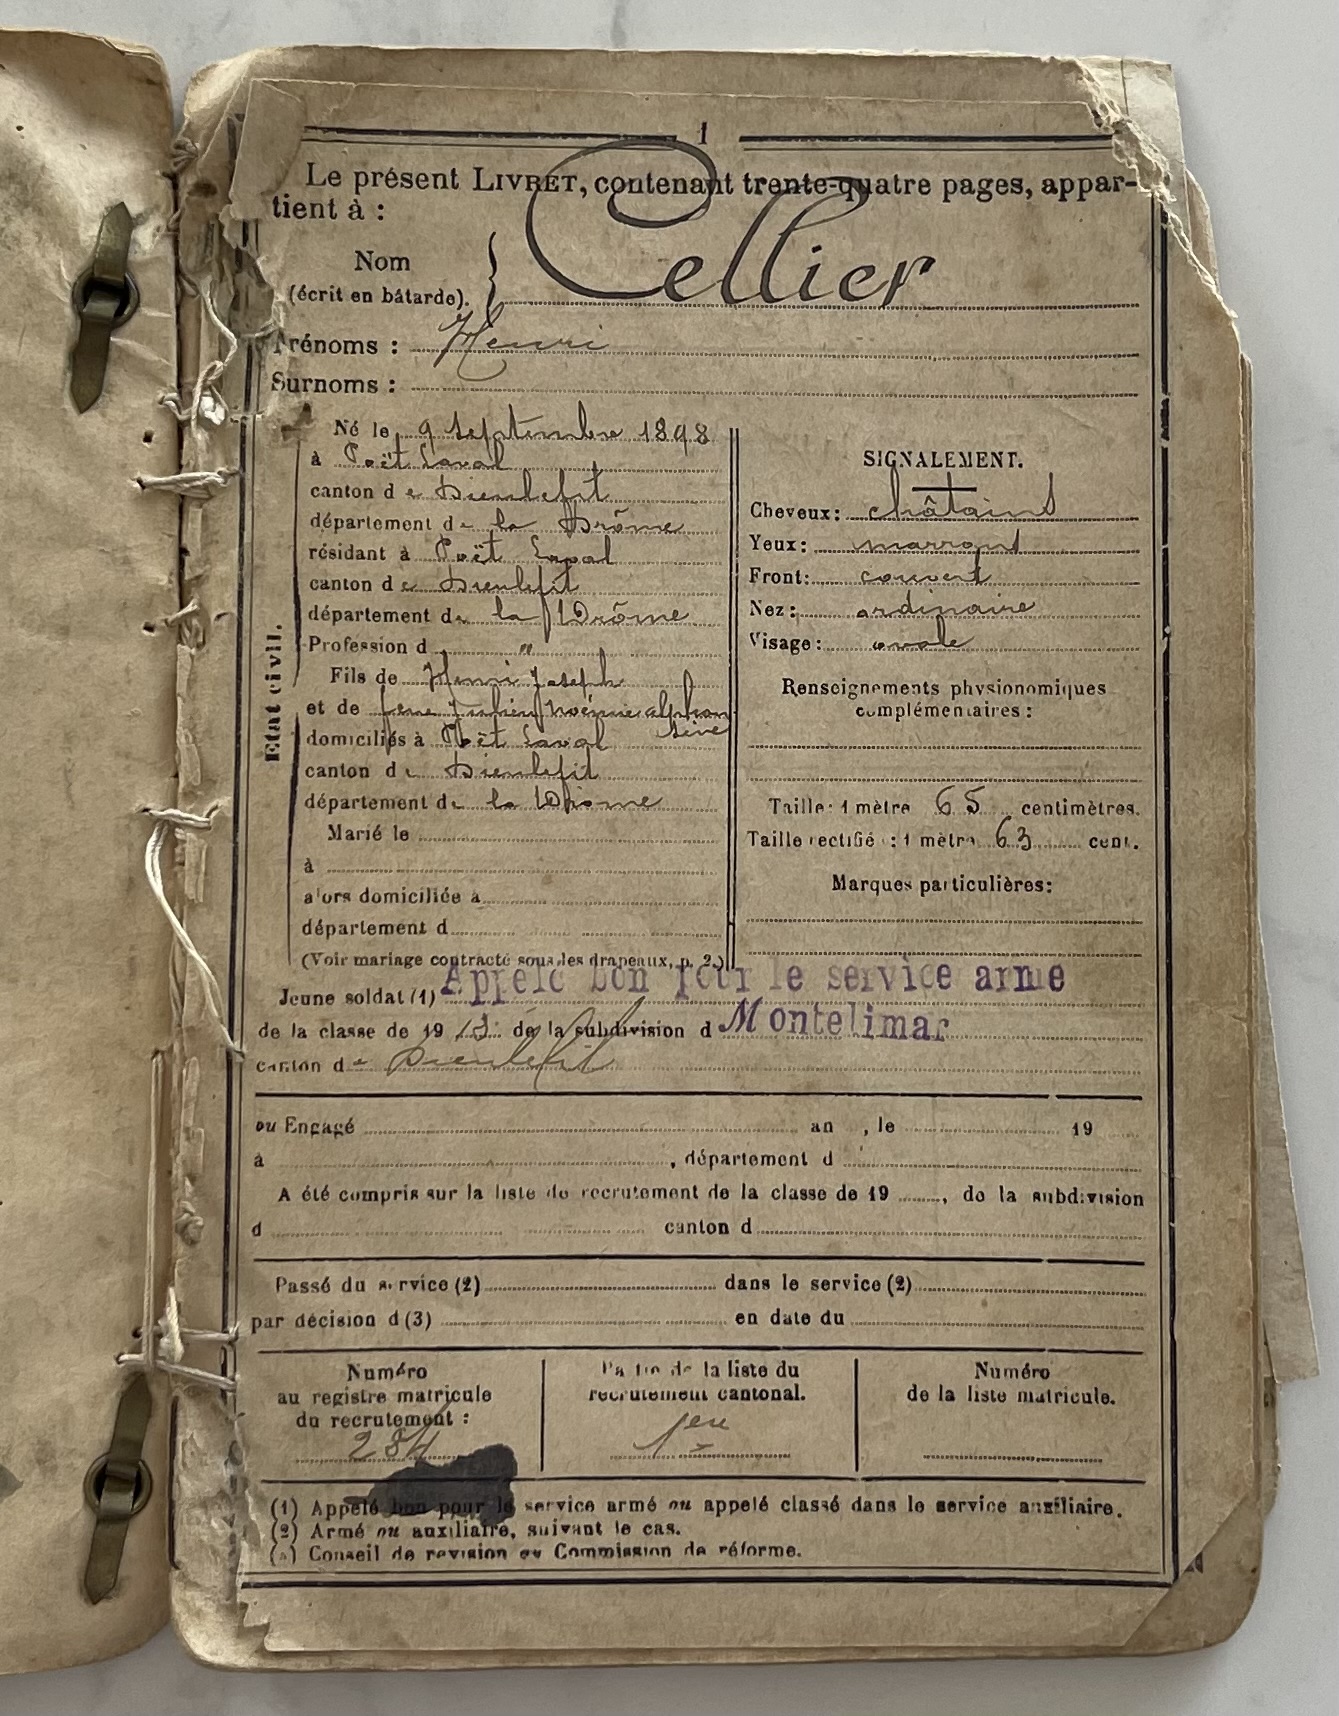 1
Le présent LIVRET, contenant trente-quatre pages, appar-
tient à :
Nom
(écrit en bâtarde).
Cellier
Prénoms : Henri
Surnoms :
Etat civil.
Né le 9 septembre 1898
à Poët Laval
canton de Dieulefit
département de la Drôme
résidant à Poët Laval
canton de Dieulefit
département de la Drôme
Profession d "
Fils de Henri Joseph
et de alphon-
sine
domiciliés à Poët Laval
canton de Dieulefit
département de la Drôme
Marié le
à
alors domiciliée à
département d
(Voir mariage contracté sous les drapeaux, p. 2.)
SIGNALEMENT.
Cheveux: châtains
Yeux: marrons
Front: couvert
Nez: ordinaire
Visage: ovale
Renseignements physionomiques
complémentaires :
Taille: 1 mètre 65 centimètres.
Taille rectifiée : 1 mètre 63 cent.
Marques particulières:
Jeune soldat (1) Appelé bon pour le service armé
de la classe de 19 de la subdivision d Montelimar
canton de Dieulefit
ou Engagé an , le 19
à , département d
A été compris sur la liste de recrutement de la classe de 19 , de la subdivision
d canton d
Passé du service (2) dans le service (2)
par décision d (3) en date du
Numéro
au registre matricule
du recrutement :
Partie de la liste du
recrutement cantonal.
1ere
Numéro
de la liste matricule.
(1) Appelé bon pour le service armé ou appelé classé dans le service auxiliaire.
(2) Armé ou auxiliaire, suivant le cas.
(3) Conseil de revision ou Commission de réforme.